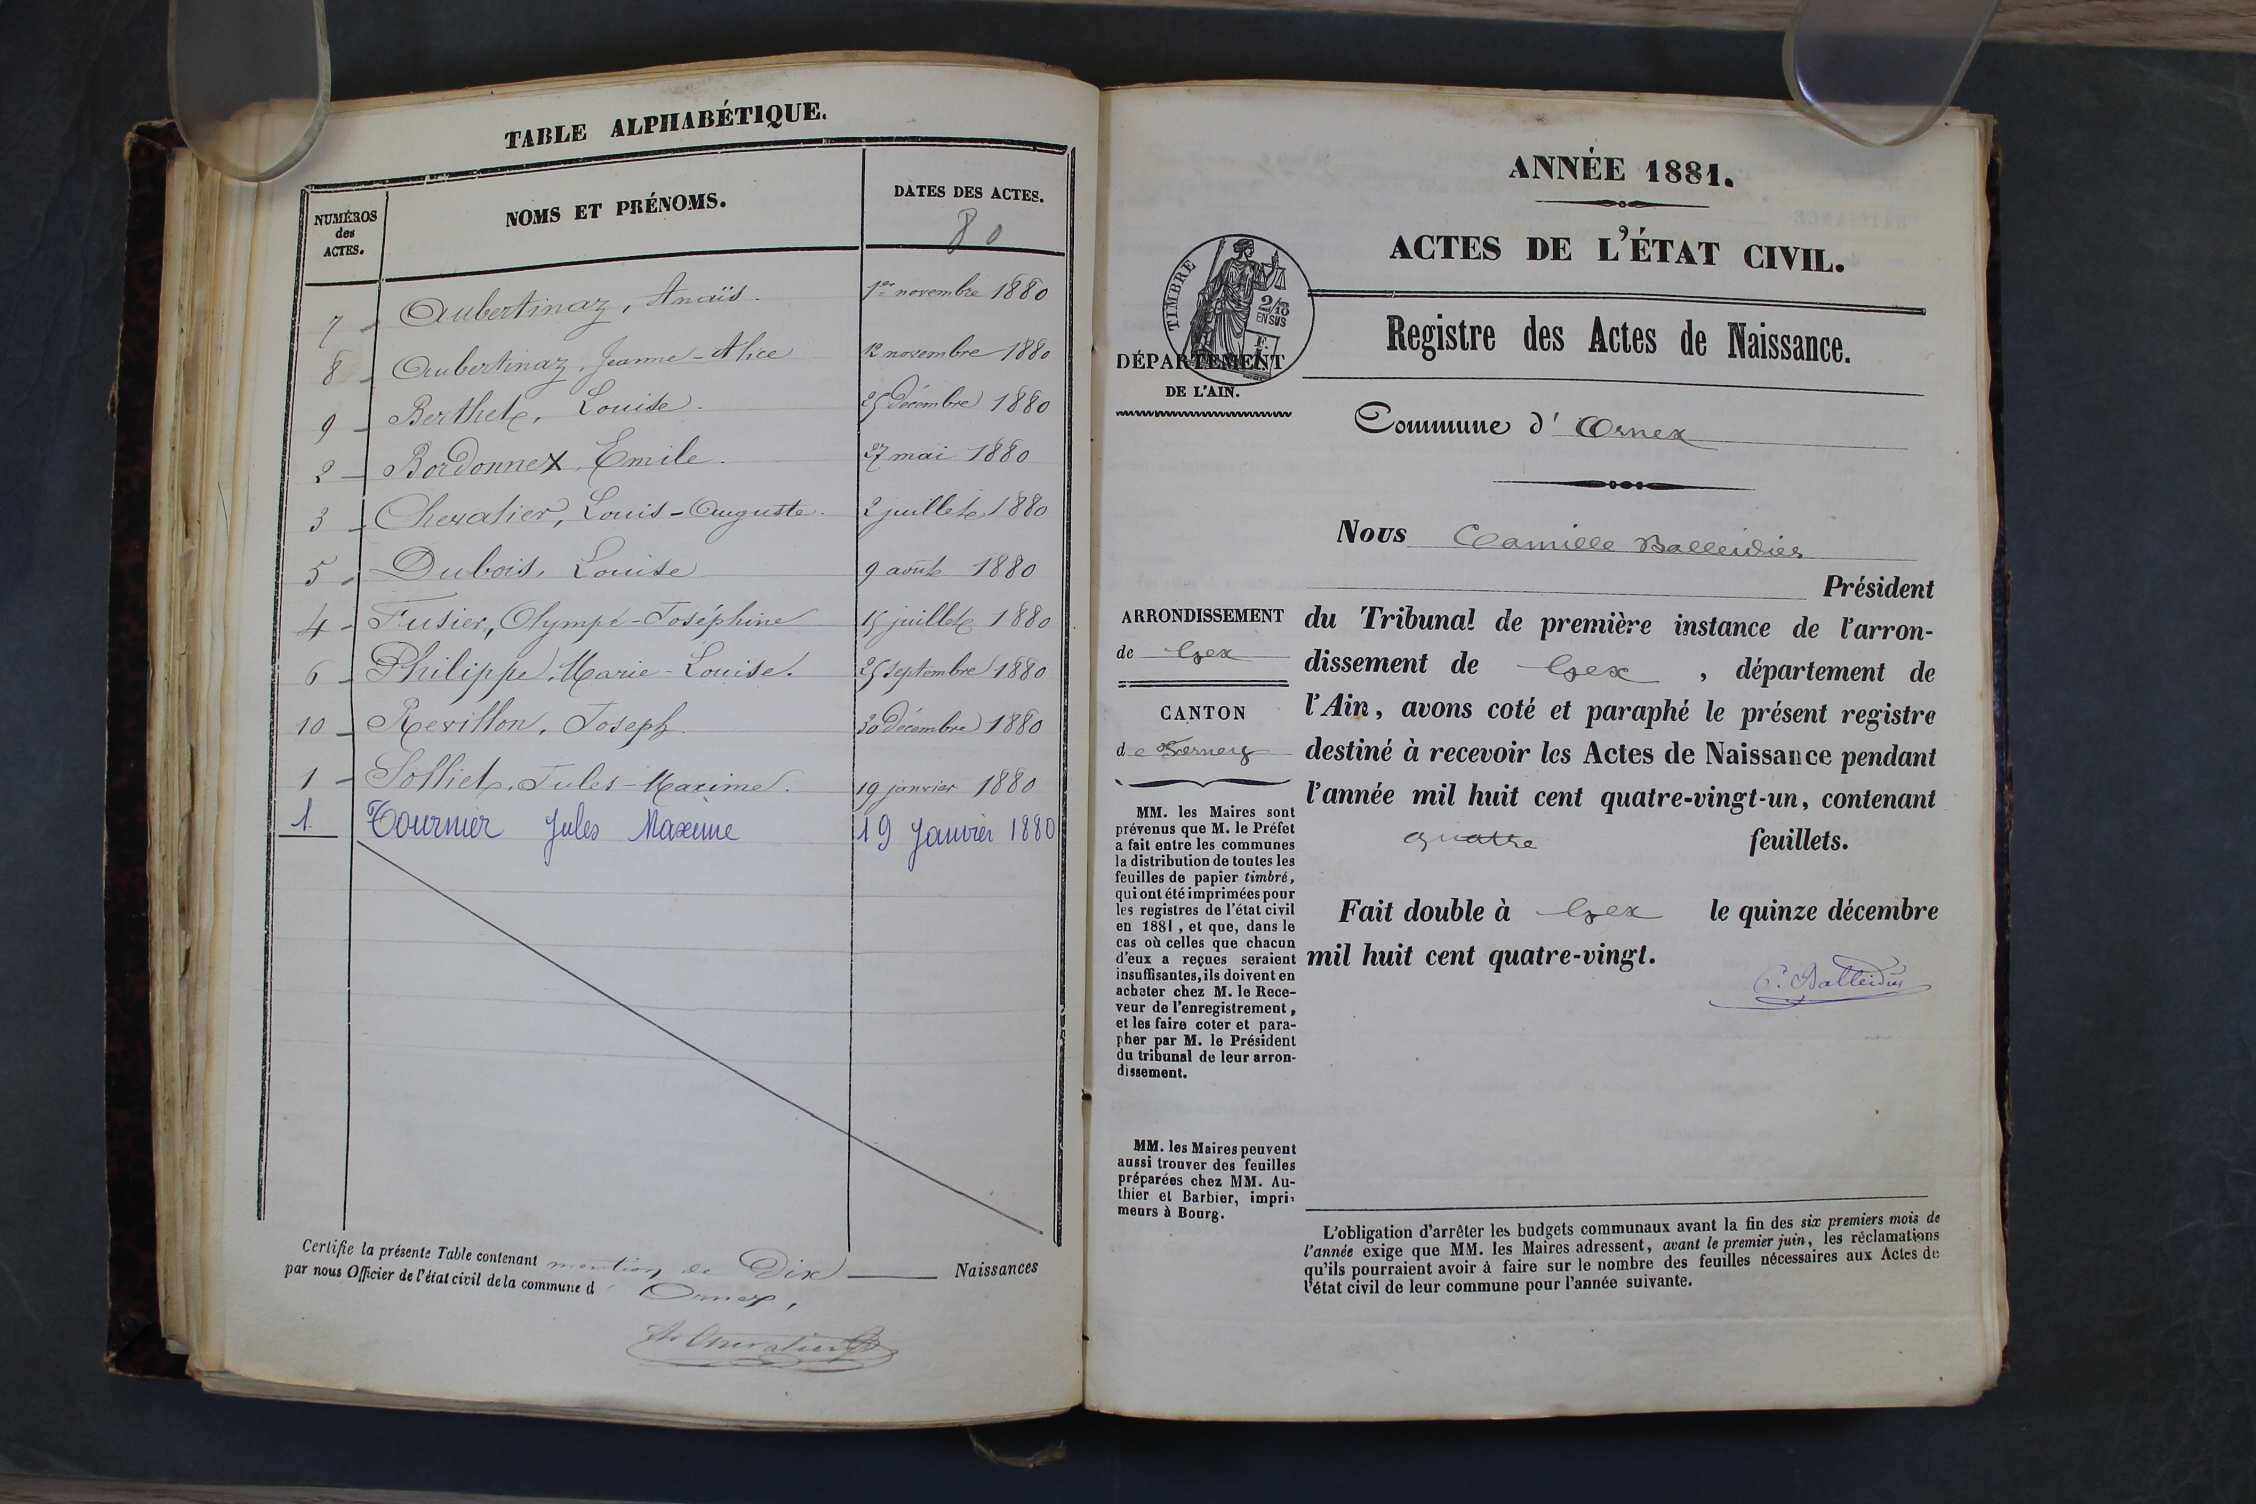 TABLE ALPHABÉTIQUE.
NUMÉROS des ACTES.
NOMS ET PRÉNOMS.
DATES DES ACTES.
80
7 - Aubertinaz, Anaïs. 1er novembre 1880
8 - Aubertinaz, Jeanne-Alice 12 novembre 1880
9 - Berthet, Louise. 25 décembre 1880
2 - Bordonnex, Emile. 27 mai 1880
3 - Chevalier, Louis-Auguste. 2 juillet 1880
5 - Dubois, Louise 9 août 1880
4 - Fusier, Olympe-Joséphine 15 juillet 1880
6 - Philippe, Marie-Louise. 25 septembre 1880
10 - Revillon, Joseph. 30 décembre 1880
1 - Solliet, Jules-Maxime. 19 janvier 1880
1 Tournier Jules Maxime 19 Janvier 1880
Certifie la présente Table contenant mention de Dix Naissances
par nous Officier de l'état civil de la commune d' Ornex,
Chevalier
ANNÉE 1881.
ACTES DE L'ÉTAT CIVIL.
TIMBRE
2/10
EN SUS
Registre des Actes de Naissance.
DÉPARTEMENT
DE L'AIN.
Commune d' Ornex
Nous Camille Balleidier
Président
du Tribunal de première instance de l'arron-
dissement de Gex, département de
l'Ain, avons coté et paraphé le présent registre
destiné à recevoir les Actes de Naissance pendant
l'année mil huit cent quatre-vingt-un, contenant
quatre feuillets.
Fait double à Gex le quinze décembre
mil huit cent quatre-vingt.
C. Balleidier
ARRONDISSEMENT
de Gex
CANTON
de Ferney
MM. les Maires sont
prévenus que M. le Préfet
a fait entre les communes
la distribution de toutes les
feuilles de papier timbré,
qui ont été imprimées pour
les registres de l'état civil
en 1881, et que, dans le
cas où celles que chacun
d'eux a reçues seraient
insuffisantes, ils doivent en
acheter chez M. le Rece-
veur de l'enregistrement,
et les faire coter et para-
pher par M. le Président
du tribunal de leur arron-
dissement.
MM. les Maires peuvent
aussi trouver des feuilles
préparées chez MM. Au-
thier et Barbier, impri-
meurs à Bourg.
L'obligation d'arrêter les budgets communaux avant la fin des six premiers mois de
l'année exige que MM. les Maires adressent, avant le premier juin, les réclamations
qu'ils pourraient avoir à faire sur le nombre des feuilles nécessaires aux Actes de
l'état civil de leur commune pour l'année suivante.